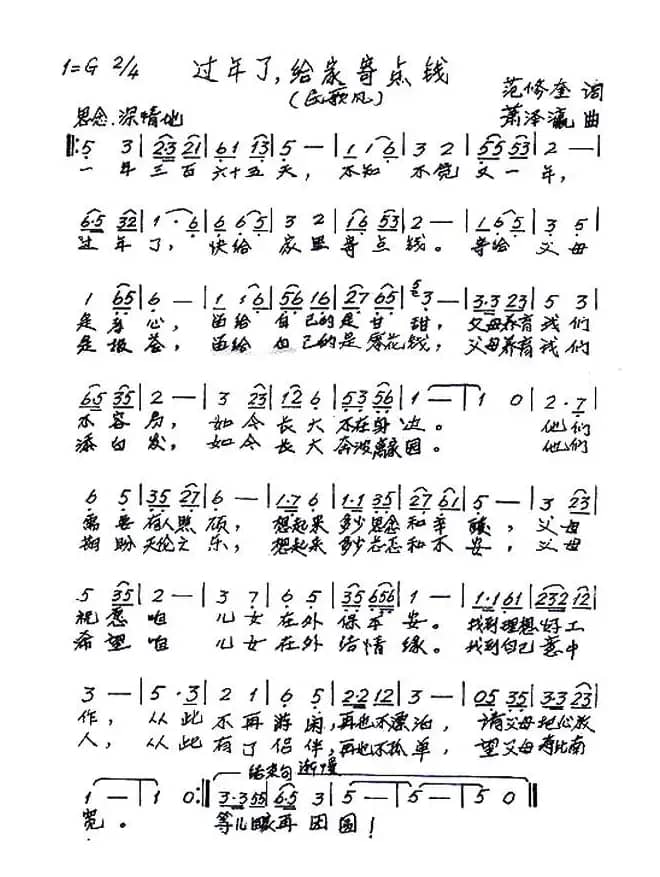 1=G 2/4 过年了,给家寄点钱
(民歌风)
范修奎 词
思念.深情地 萧泽瀛 曲
‖: 5 3 | 23 21 | 61 23 | 5 — | 1 1 6 | 3 2 | 55 53 | 2 — |
一年三百六十五天，不知不觉又一年，
6·5 32 | 1 · 6 | 6 6 5 | 3 2 | 16 53 | 2 — | 1 6 5 | 3 5 |
过年了，快给家里寄点钱。寄给父母
1 65 | 6 — | 1 1 6 | 56 16 | 27 65 | 3 — | 3·3 23 | 5 3 |
是孝心，留给自己的是甘甜，父母养育我们
是报答，留给自己的是零花钱，父母养育我们
65 35 | 2 — | 3 23 | 12 6 | 53 56 | 1 — | 1 0 | 2 · 7 |
不容易，如今长大不在身边。他们
添白发，如今长大奔波离家园。他们
6 5 | 35 27 | 6 — | 1·7 6 | 1·1 35 | 27 61 | 5 — | 3 23 |
需要有人照顾，想起来多少思念和辛酸，父母
期盼天伦之乐，想起来多少忐忑和不安，父母
5 35 | 2 — | 3 7 | 6 5 | 35 656 | 1 — | 1·1 61 | 232 12 |
祝愿咱儿女在外保平安。找到理想好工
希望咱儿女在外结情缘。找到自己意中
3 — | 5 · 3 | 2 1 | 6 5 | 2·2 12 | 3 — | 05 35 | 3·3 23 |
作，从此不再游闲，再也不漂泊，请父母把心放
人，从此有了侣伴，再也不孤单，望父母看比南
结束句 渐慢
1 — | 1 0 :‖ 3·3 55 | 6·5 3 | 5 — | 5 — | 5 0 ‖
宽。等儿回家再团圆！